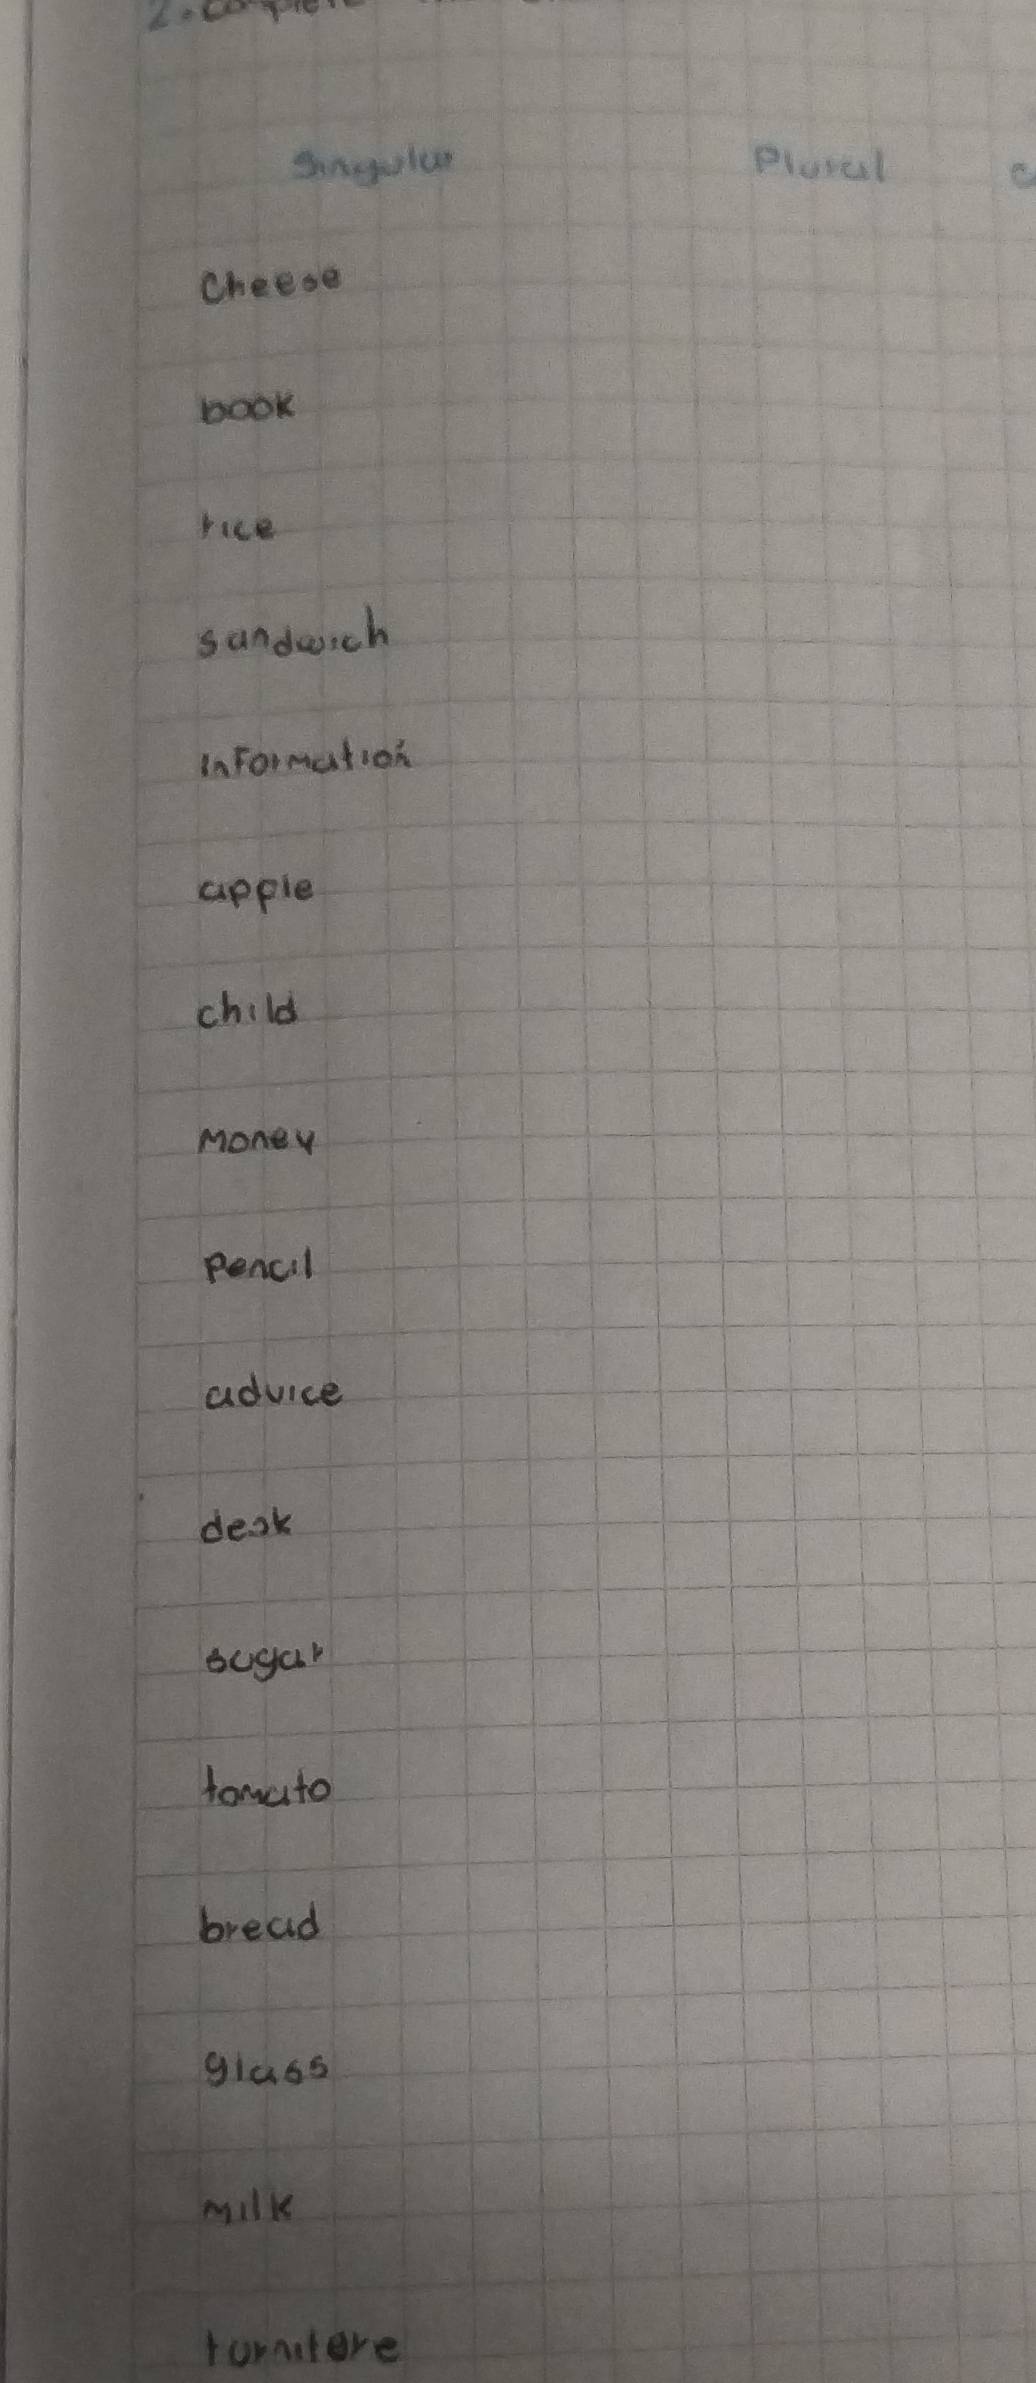 2. Complete
Singular Plural
Cheese
book
rice
sandwich
information
apple
child
Money
Pencil
advice
desk
sugar
tomato
bread
glass
milk
furniture